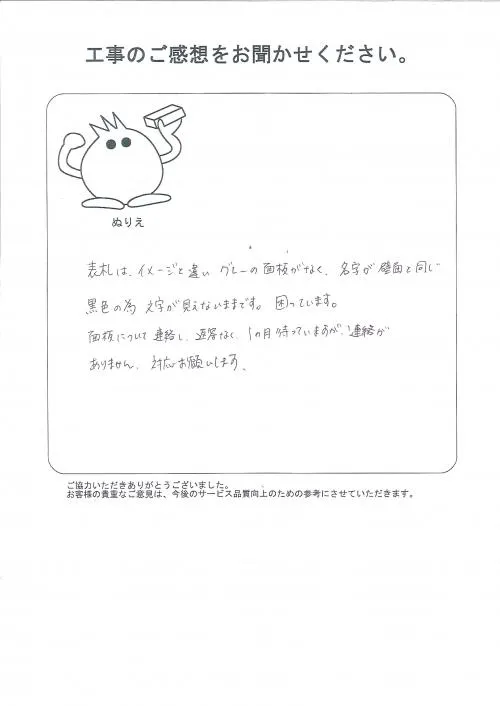 工事のご感想をお聞かせください。
ぬりえ
表札は、イメージと違い グレーの面板がなく、名字が壁面と同じ
黒色の為 文字が見えないままです。 困っています。
面板について連絡し、返答なく、1ヶ月待っていますが、連絡が
ありません、対応お願いします。
ご協力いただきありがとうございました。
お客様の貴重なご意見は、今後のサービス品質向上のための参考にさせていただきます。